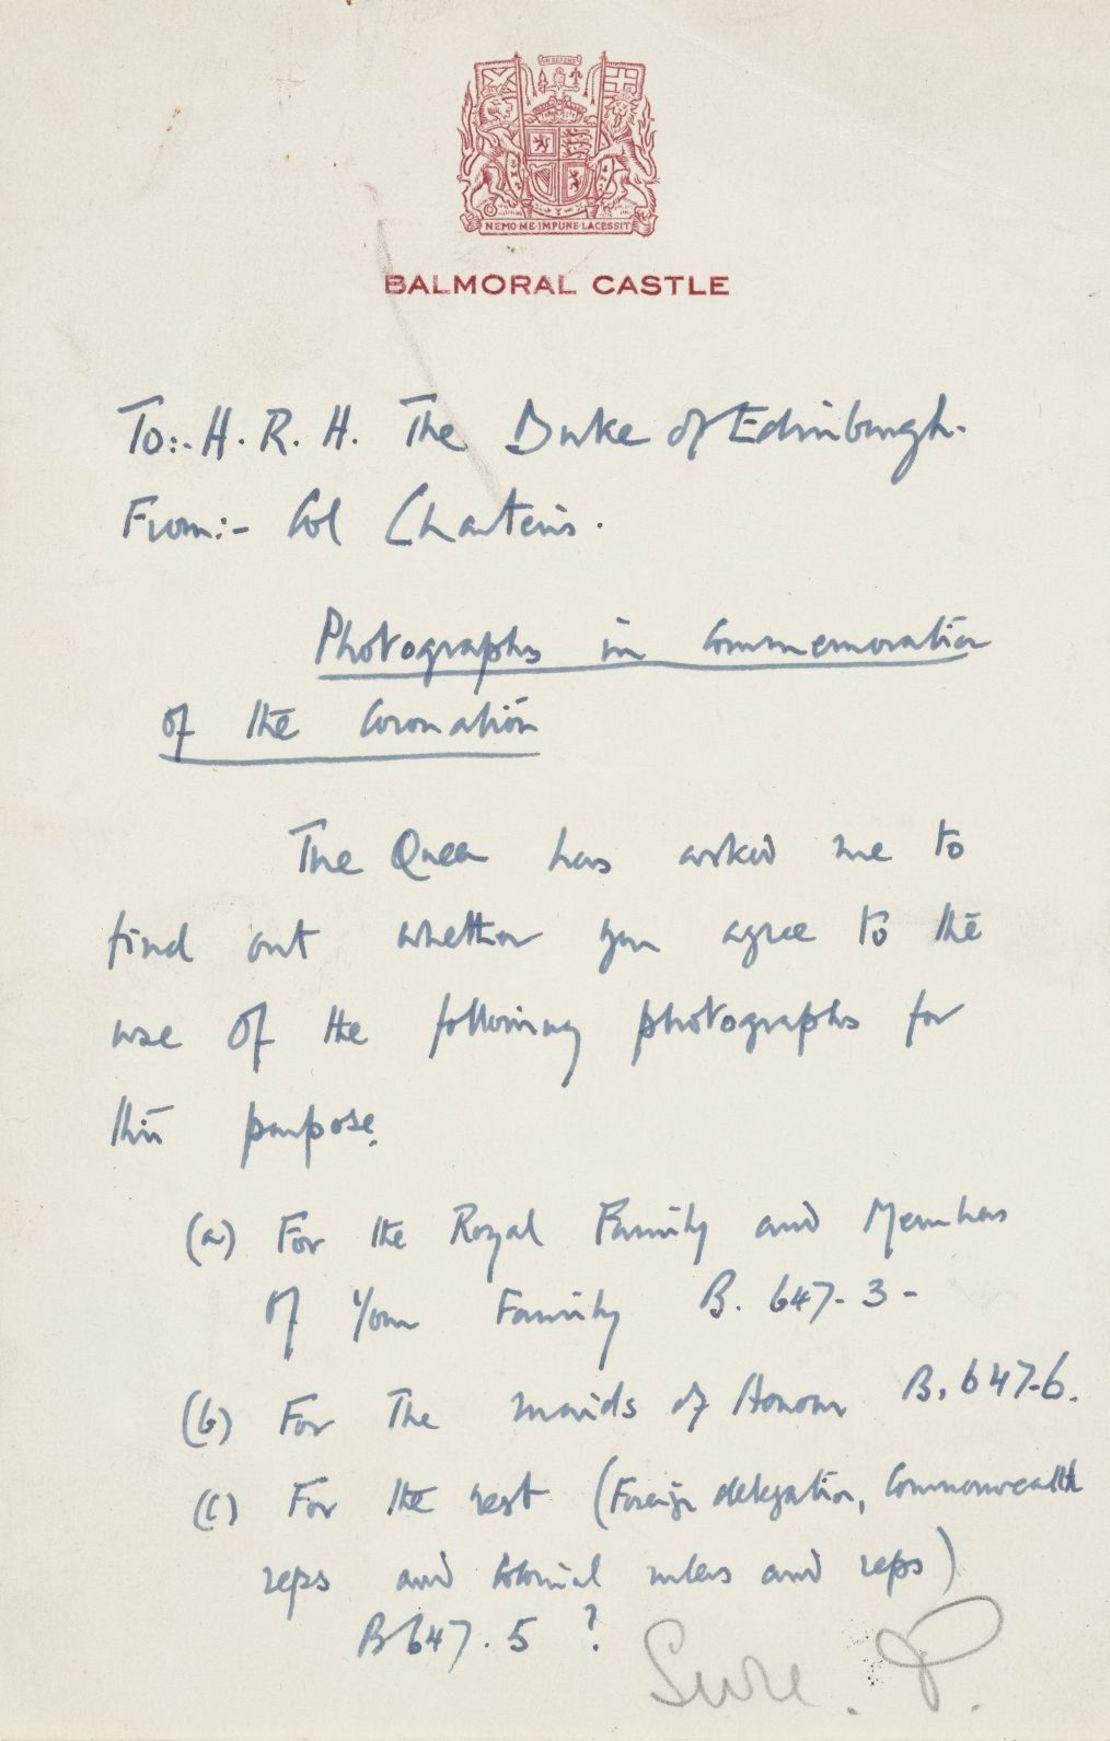 IN DEFENS
NEMO·ME·IMPUNE·LACESSIT
BALMORAL CASTLE
To:- H.R.H. The Duke of Edinburgh.
From:- Col Charteris.
Photographs in Commemoration
of the Coronation
The Queen has asked me to
find out whether you agree to the
use of the following photographs for
this purpose.
(a) For the Royal Family and Members
of Your Family B. 647-3-
(b) For The maids of Honour B. 647-6.
(c) For the rest (Foreign delegation, Commonwealth
reps and Colonial rulers and reps)
B 647.5 ?
Sure. P.